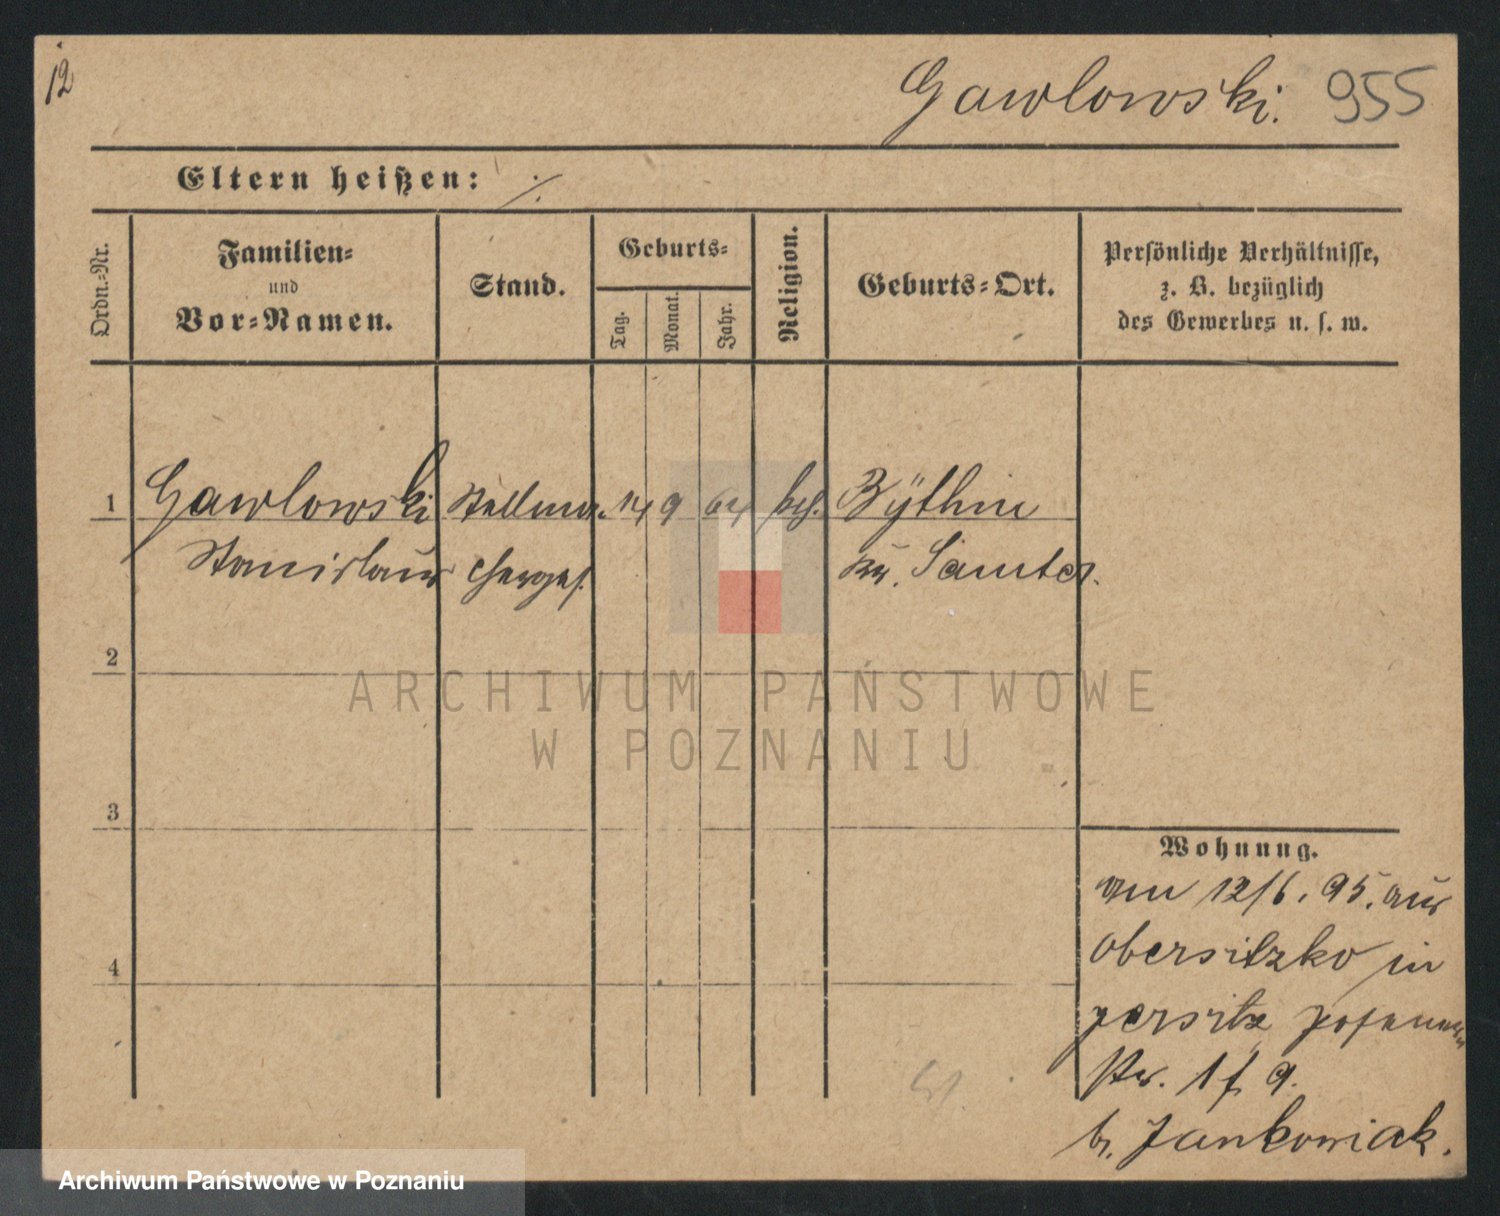 12
Gawlowski. 955
Eltern heißen: ./.
Ordn.-Nr.
Familien-
und
Vor-Namen.
Stand.
Geburts-
Tag.
Monat.
Jahr.
Religion.
Geburts-Ort.
Persönliche Verhältnisse,
z. B. bezüglich
des Gewerbes u. s. w.
1 Gawlowski Stellma- 14 9 64 Bÿthin
Stanislaus cherges. Kr. Samter.
2
3
4
Wohnung.
am 12/6. 95. aus
Obersitzko in
Jersitz Posener
Str. 9.
b. Jankowiak.
ARCHIWUM PAŃSTWOWE
W POZNANIU
Archiwum Państwowe w Poznaniu